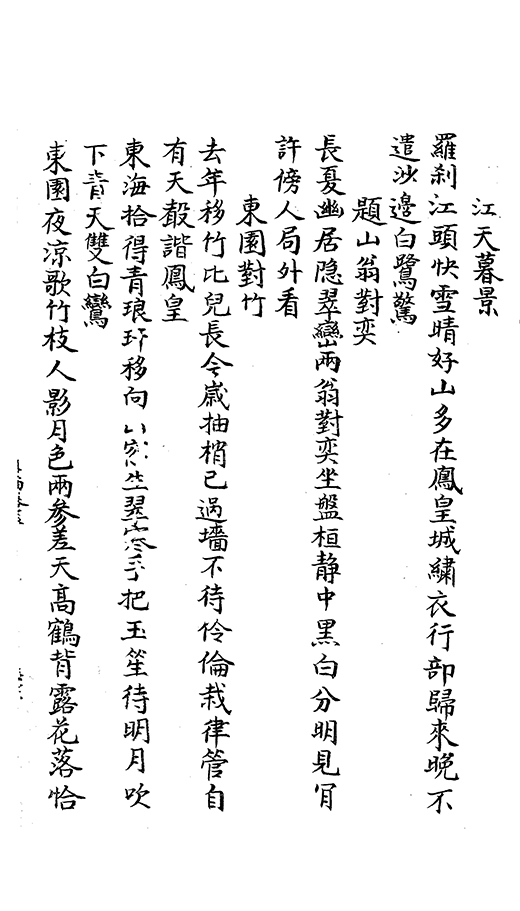 江天暮景
羅刹江頭快雪晴好山多在鳳皇城繡衣行部歸來晚不
遣沙邊白鷺驚
題山翁對奕
長夏幽居隐翠巒兩翁對奕坐盤桓静中黑白分明見肎
許傍人局外看
東園對竹
去年移竹比兒長今歲抽梢已過墻不待伶倫栽律管自
有天㲉諧鳳皇
東海拾得青琅玕移向生翠寒手把玉笙待明月吹
下青天雙白鸞
東園夜凉歌竹枝人影月色兩參差天髙鶴背露花落恰